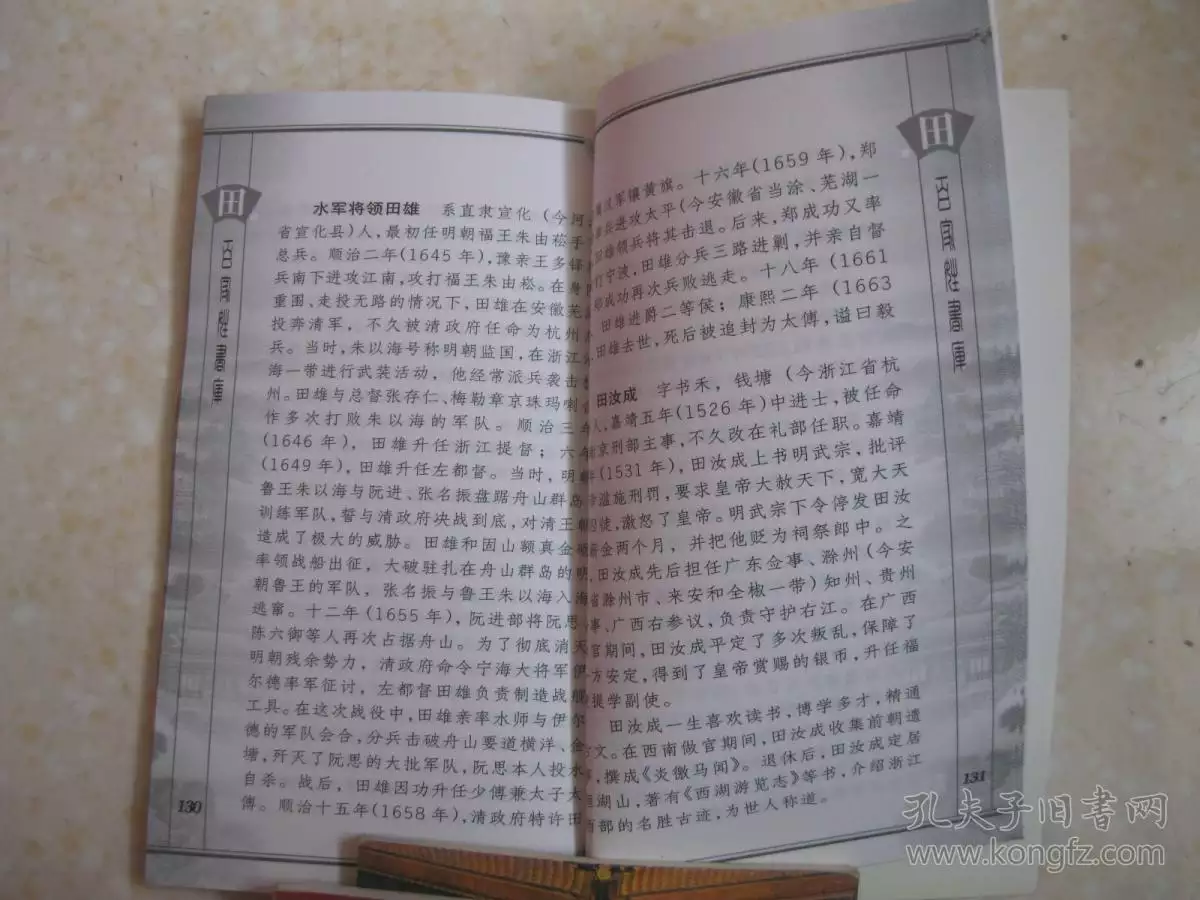 田
百家姓書庫
水军将领田雄 系直隶宣化（今河
省宣化县）人，最初任明朝福王朱由崧手
总兵。顺治二年（1645 年），豫亲王多铎
兵南下进攻江南，攻打福王朱由崧。在
重围、走投无路的情况下，田雄在安徽芜
投奔清军，不久被清政府任命为杭州
兵。当时，朱以海号称明朝监国，在浙江
海一带进行武装活动，他经常派兵袭击
州。田雄与总督张存仁、梅勒章京珠玛喇
作多次打败朱以海的军队。顺治三
（1646 年），田雄升任浙江提督；六
（1649 年），田雄升任左都督。当时，明
鲁王朱以海与阮进、张名振盘踞舟山群岛
训练军队，誓与清政府决战到底，对清王朝
造成了极大的威胁。田雄和固山额真金
率领战船出征，大破驻扎在舟山群岛的明
朝鲁王的军队，张名振与鲁王朱以海入海
逃窜。十二年（1655 年），阮进部将阮思
陈六御等人再次占据舟山。为了彻底消灭
明朝残余势力，清政府命令宁海大将军伊
尔德率军征讨，左都督田雄负责制造战船
工具。在这次战役中，田雄亲率水师与伊尔
德的军队会合，分兵击破舟山要道横洋、金
塘，歼灭了阮思的大批军队，阮思本人投水
自杀。战后，田雄因功升任少傅兼太子太
傅。顺治十五年（1658 年），清政府特许田
130
汉军镶黄旗。十六年（1659 年），郑
兵进攻太平（今安徽省当涂、芜湖一
田雄领兵将其击退。后来，郑成功又率
打宁波，田雄分兵三路进剿，并亲自督
郑成功再次兵败逃走。十八年（1661
田雄进爵二等侯；康熙二年（1663
田雄去世，死后被追封为太傅，谥曰毅
田汝成 字书禾，钱塘（今浙江省杭
人，嘉靖五年（1526 年）中进士，被任命
南京刑部主事，不久改在礼部任职。嘉靖
年（1531 年），田汝成上书明武宗，批评
滥施刑罚，要求皇帝大赦天下，宽大天
囚徒，激怒了皇帝。明武宗下令停发田汝
薪金两个月，并把他贬为祠祭郎中。之
田汝成先后担任广东佥事、滁州（今安
省滁州市、来安和全椒一带）知州、贵州
事、广西右参议，负责守护右江。在广西
官期间，田汝成平定了多次叛乱，保障了
方安定，得到了皇帝赏赐的银币，升任福
提学副使。
田汝成一生喜欢读书，博学多才，精通
古文。在西南做官期间，田汝成收集前朝遗
事，撰成《炎徼马闻》。退休后，田汝成定居
湖山，著有《西湖游览志》等书，介绍浙江
西部的名胜古迹，为世人称道。
田
百家姓書庫
131
孔夫子旧书网
www.kongfz.com